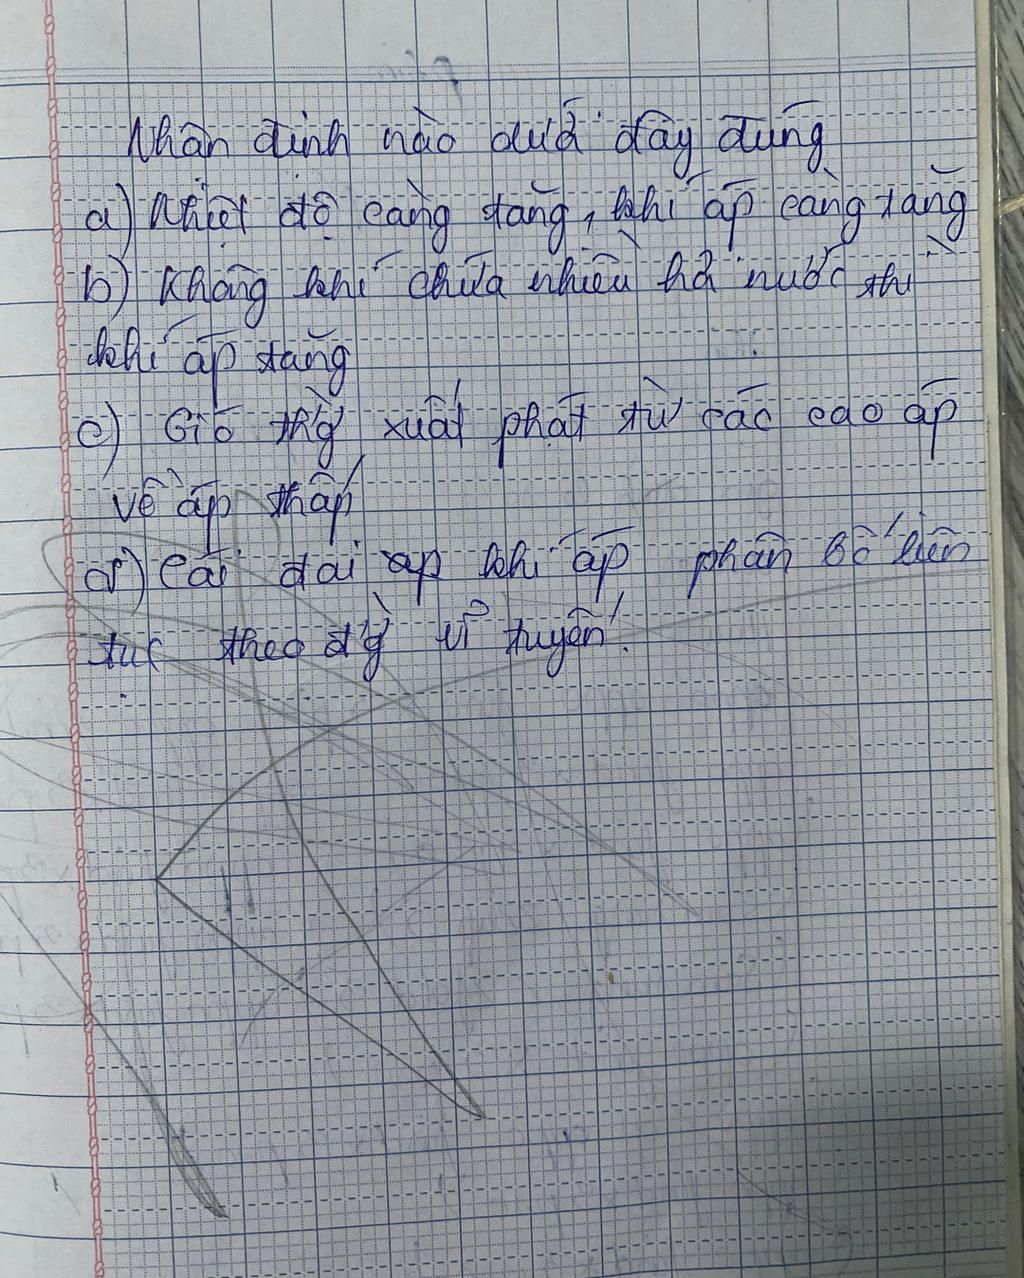 Nhận định nào dưới đây đúng
a) Nhiệt độ càng tăng, khí áp càng tăng
b) Không khí chứa nhiều hơi nước thì
khí áp tăng
c) Gió thg xuất phát từ các cao áp
về áp thấp
d) Các đai áp khí áp phân bố liên
tục theo dg vĩ tuyến.